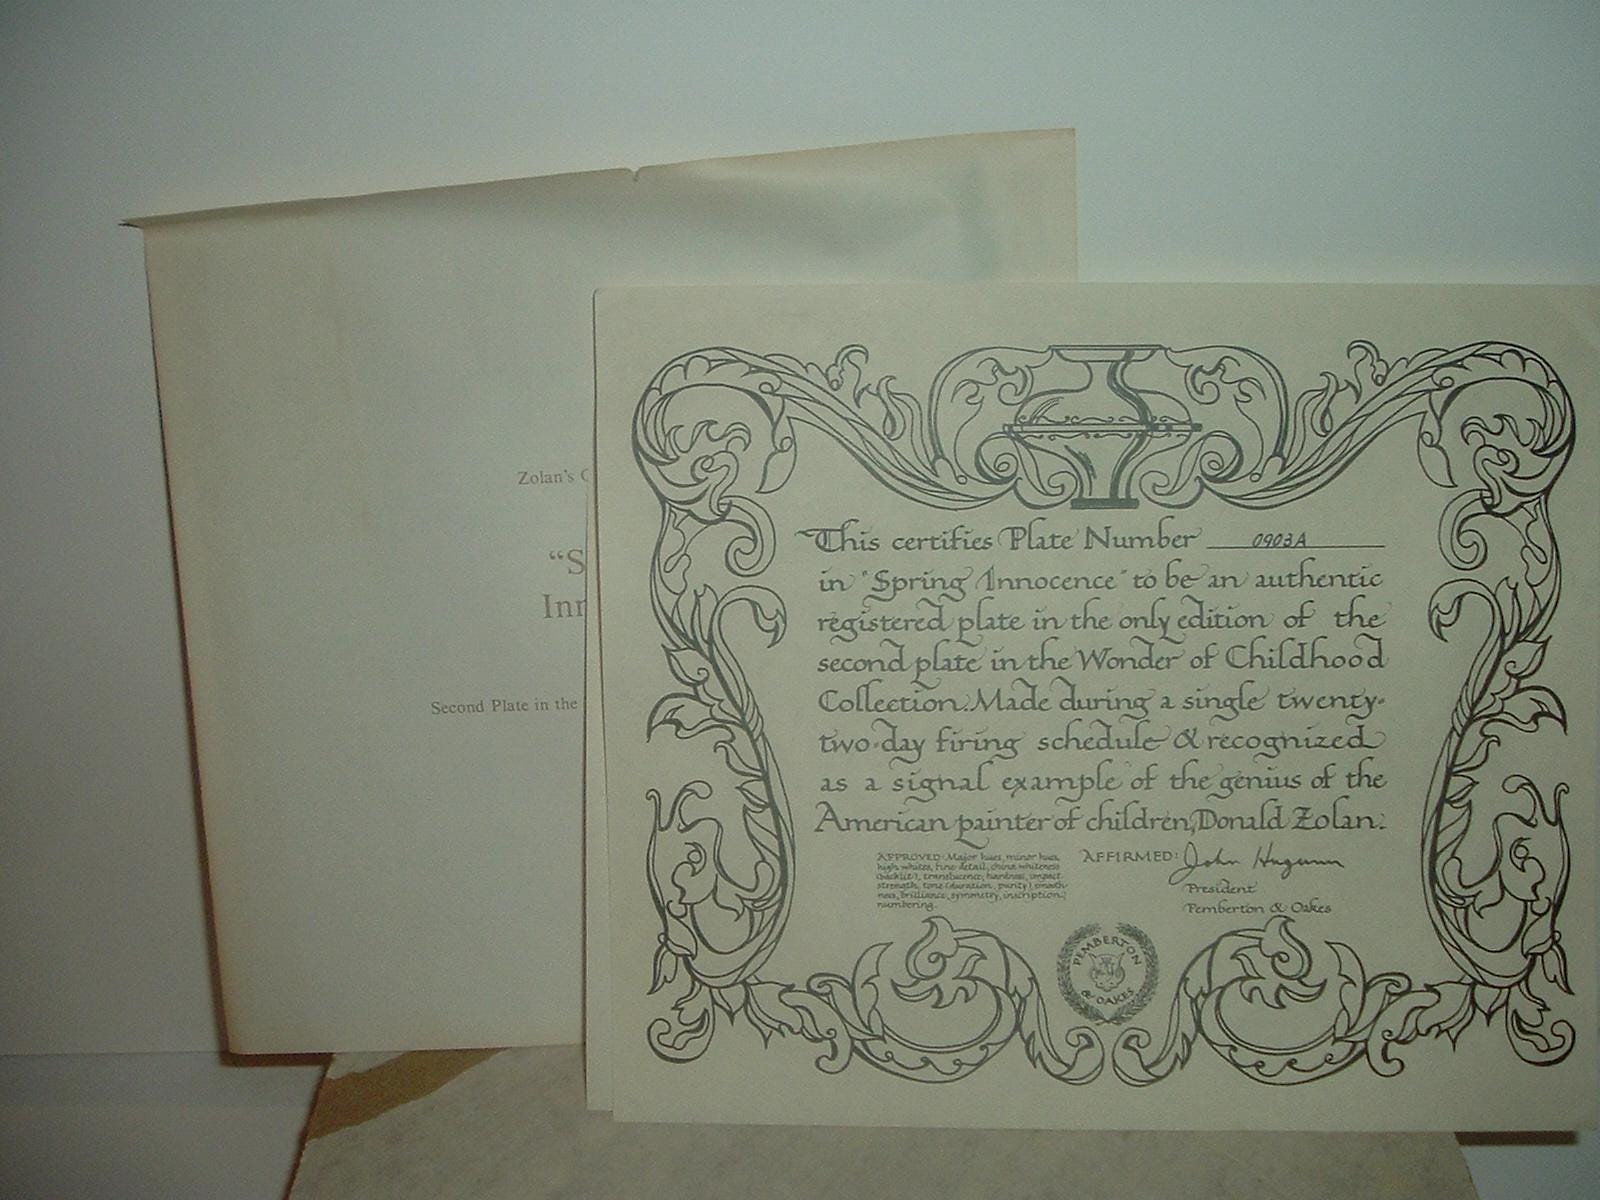 Zolan's
"S
Inn
Second Plate in the
This certifies Plate Number 0903A
in "Spring Innocence" to be an authentic
registered plate in the only edition of the
second plate in the Wonder of Childhood
Collection. Made during a single twenty-
two-day firing schedule & recognized
as a signal example of the genius of the
American painter of children, Donald Zolan.
APPROVED: Major hues, minor hues,
high whites, fine detail, china whiteness
(backlit), translucence, hardness, impact
strength, tone (duration, purity), smooth-
ness, brilliance, symmetry, inscription,
numbering.
AFFIRMED: John
President
Pemberton & Oakes
PEMBERTON
& OAKES